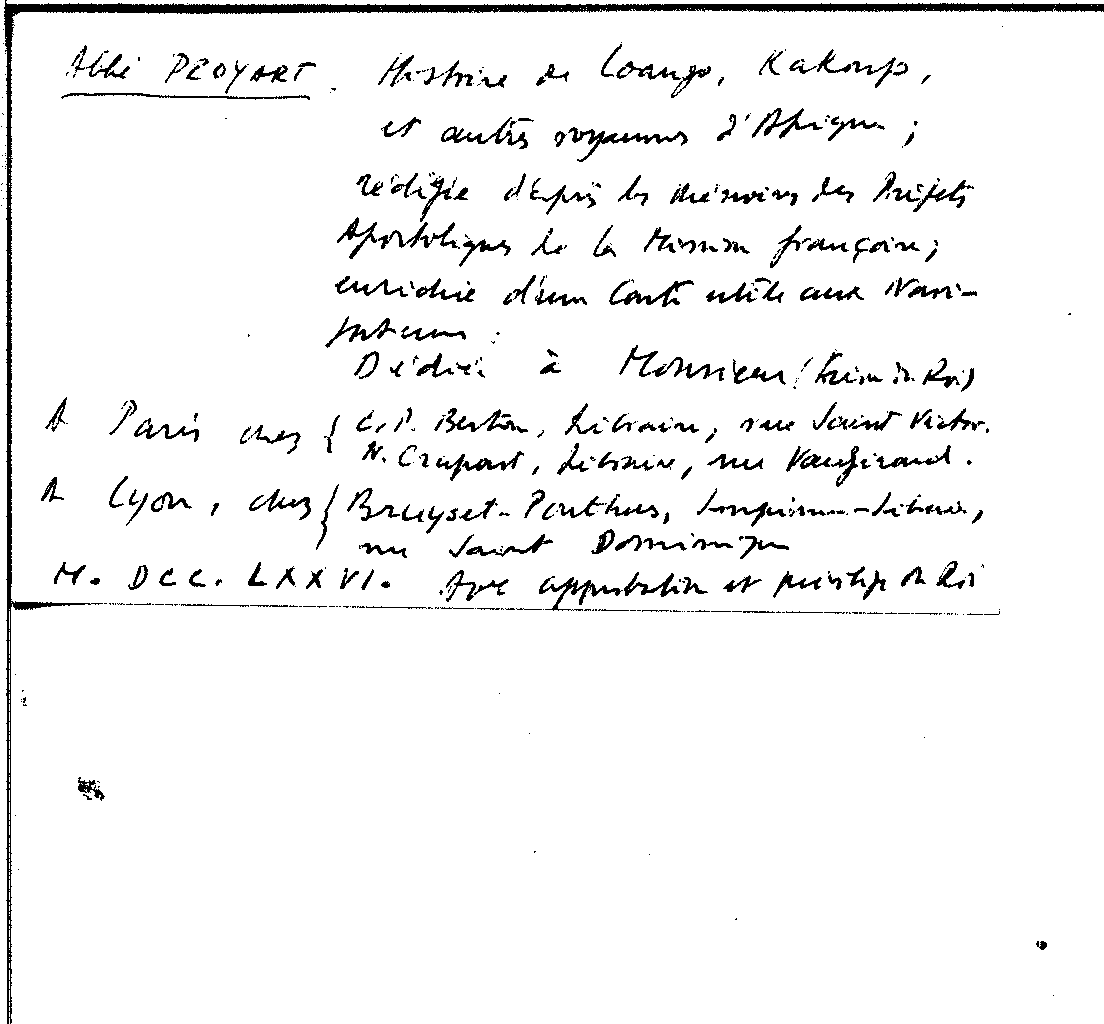 Abbé PROYART. Histoire de Loango, Kakongo,
et autres royaumes d'Afrique ;
rédigée d'après les mémoires des Préfets
Apostoliques de la Mission françoise ;
enrichie d'une Carte utile aux Navi-
gateurs :
Dédiée à Monsieur (Frère du Roi)
A Paris chez { C.P. Berton, Libraire, rue Saint Victor.
N. Crapart, Libraire, rue Vaugirard.
A Lyon, chez { Bruyset-Ponthus, Imprimeur-Libraire,
rue Saint Dominique
M. DCC. LXXVI. Avec approbation et privilège du Roi